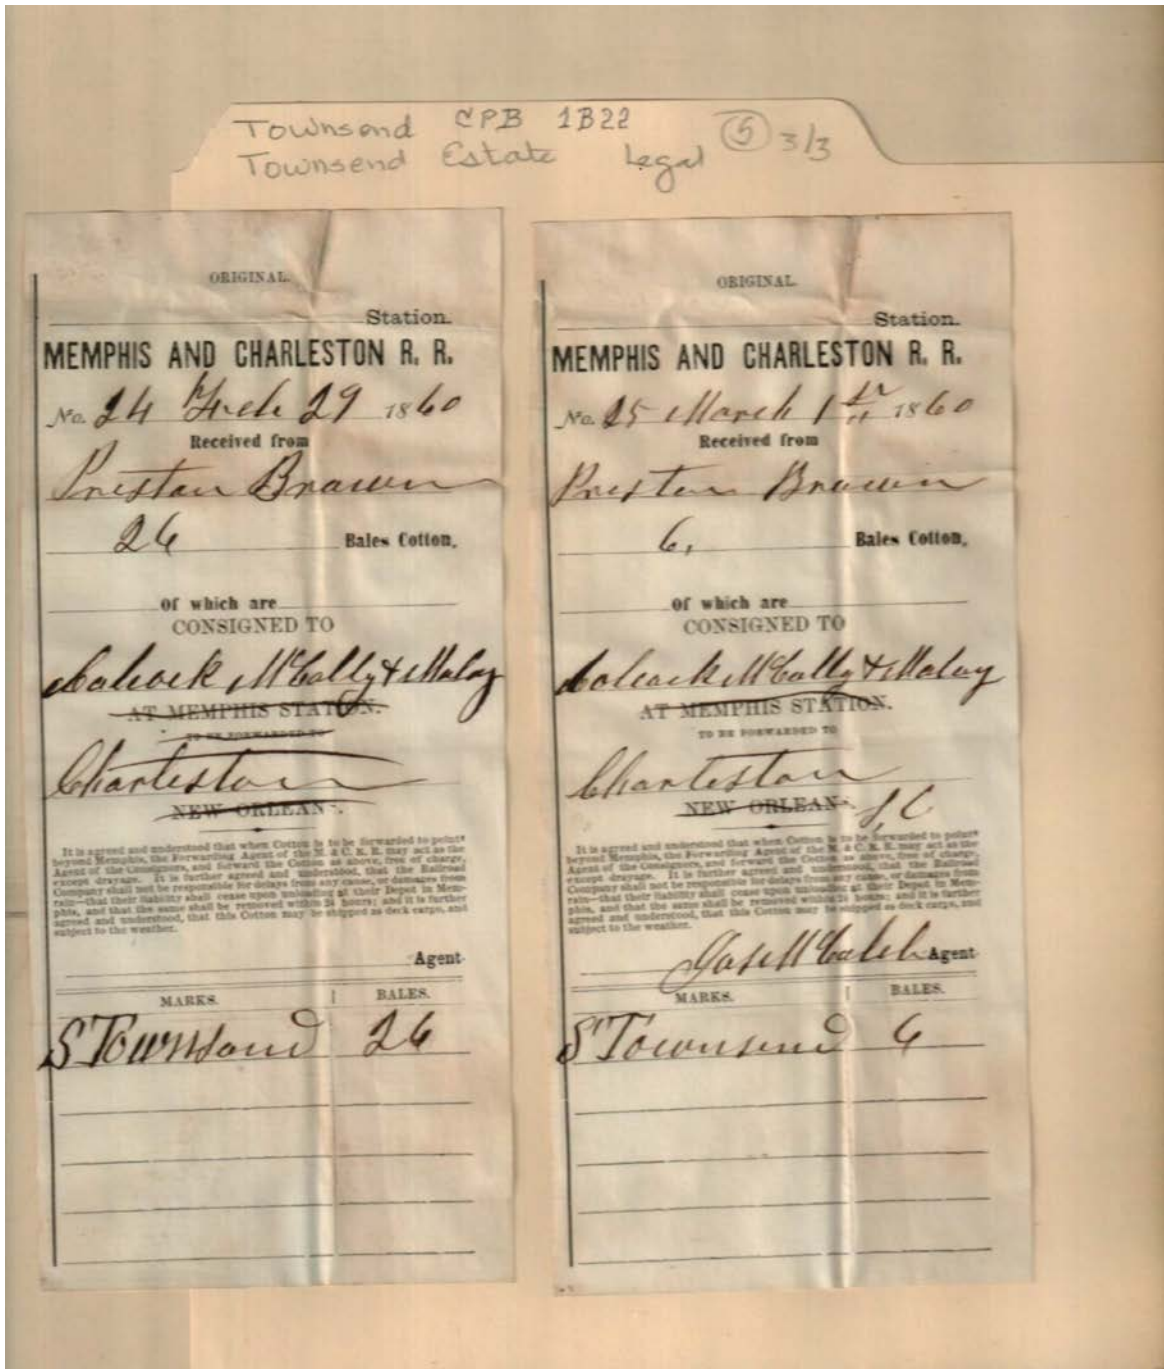 Townsend CPB 1B22 (5) 3/3
Townsend Estate Legal
ORIGINAL.
Station.
MEMPHIS AND CHARLESTON R. R.
No. 24 Feb 29 1860
Received from
Preston Brown
26 Bales Cotton,
of which are
CONSIGNED TO
Colcock McCally & Maloy
AT MEMPHIS STATION.
TO BE FORWARDED TO
Charleston
NEW ORLEANS.
It is agreed and understood that when Cotton is to be forwarded to points
beyond Memphis, the Forwarding Agent of the M. & C. R. R. may act as the
Agent of the Consignors, and forward the Cotton as above, free of charge,
except drayage. It is further agreed and understood, that the Railroad
Company shall not be responsible for delays from any cause, or damages from
rain—that their liability shall cease upon unloading at their Depot in Mem-
phis, and that the same shall be removed within 24 hours; and it is further
agreed and understood, that this Cotton may be shipped as deck cargo, and
subject to the weather.
Agent
MARKS. BALES.
S Townsend 26
ORIGINAL.
Station.
MEMPHIS AND CHARLESTON R. R.
No. 25 March 1st 1860
Received from
Preston Brown
6, Bales Cotton,
of which are
CONSIGNED TO
Colcock McCally & Maloy
AT MEMPHIS STATION.
TO BE FORWARDED TO
Charleston
NEW ORLEANS. S, C
It is agreed and understood that when Cotton is to be forwarded to points
beyond Memphis, the Forwarding Agent of the M. & C. R. R. may act as the
Agent of the Consignors, and forward the Cotton as above, free of charge,
except drayage. It is further agreed and understood, that the Railroad
Company shall not be responsible for delays from any cause, or damages from
rain—that their liability shall cease upon unloading at their Depot in Mem-
phis, and that the same shall be removed within 24 hours; and it is further
agreed and understood, that this Cotton may be shipped as deck cargo, and
subject to the weather.
Agent
MARKS. BALES.
S Townsend 6